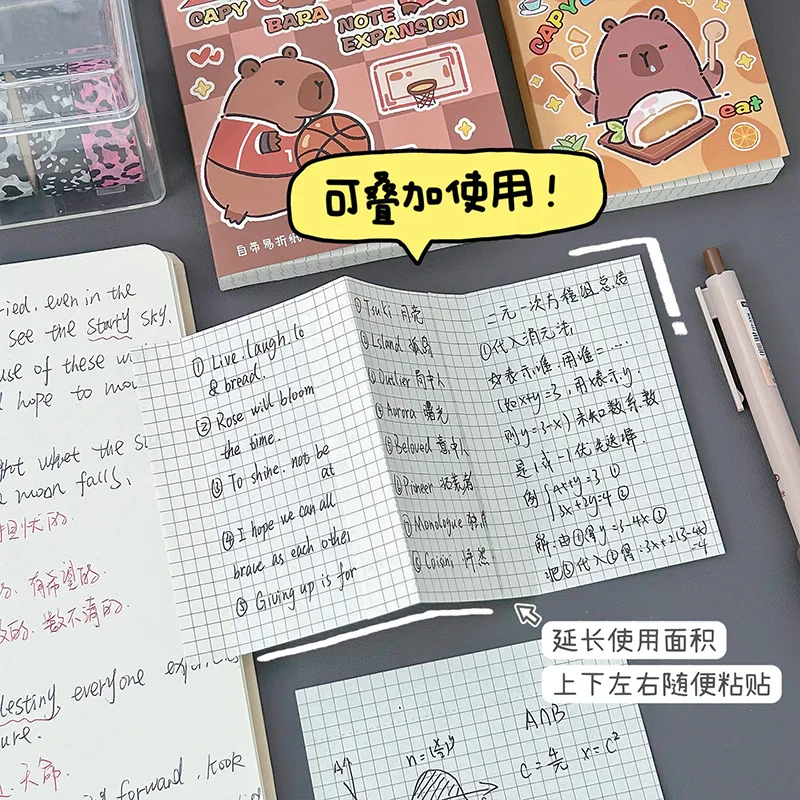 CAPY
BARA
NOTE
EXPANSION
CAPY
eat
自带易折纸
可叠加使用！
ried, even in the
see the starry sky.
use of these
hope to
what the
moon falls,
有希望的
数不清的
destiny, everyone
ure.
天命
forward, took
① Live. laugh. lo
& bread.
② Rose will bloom
the time.
③ To shine. not be
at
④ I hope we can all
brave as each other
⑤ Giving up is for
① Tsuki 月亮
② Lsland 孤岛
③ Outlier 局中人
④ Aurora 曙光
⑤ Beloved 意中人
⑥ Pioneer
⑦ Monologue 独白
⑧ Coisini 怦然
二元一次方程组总结
① 代入消元法
☆表示谁，用谁=……
(如x+y=3，用x表示y，
则y=3-x) 未知数系数
是1或-1优先选择.
例 { 4x+y=3 ①
3x+2y=4 ②
解：由①得y=3-4x ③
把③代入②得：3x+2(3-4x)
=4
延长使用面积
上下左右随便粘贴
A∩B
x=c²